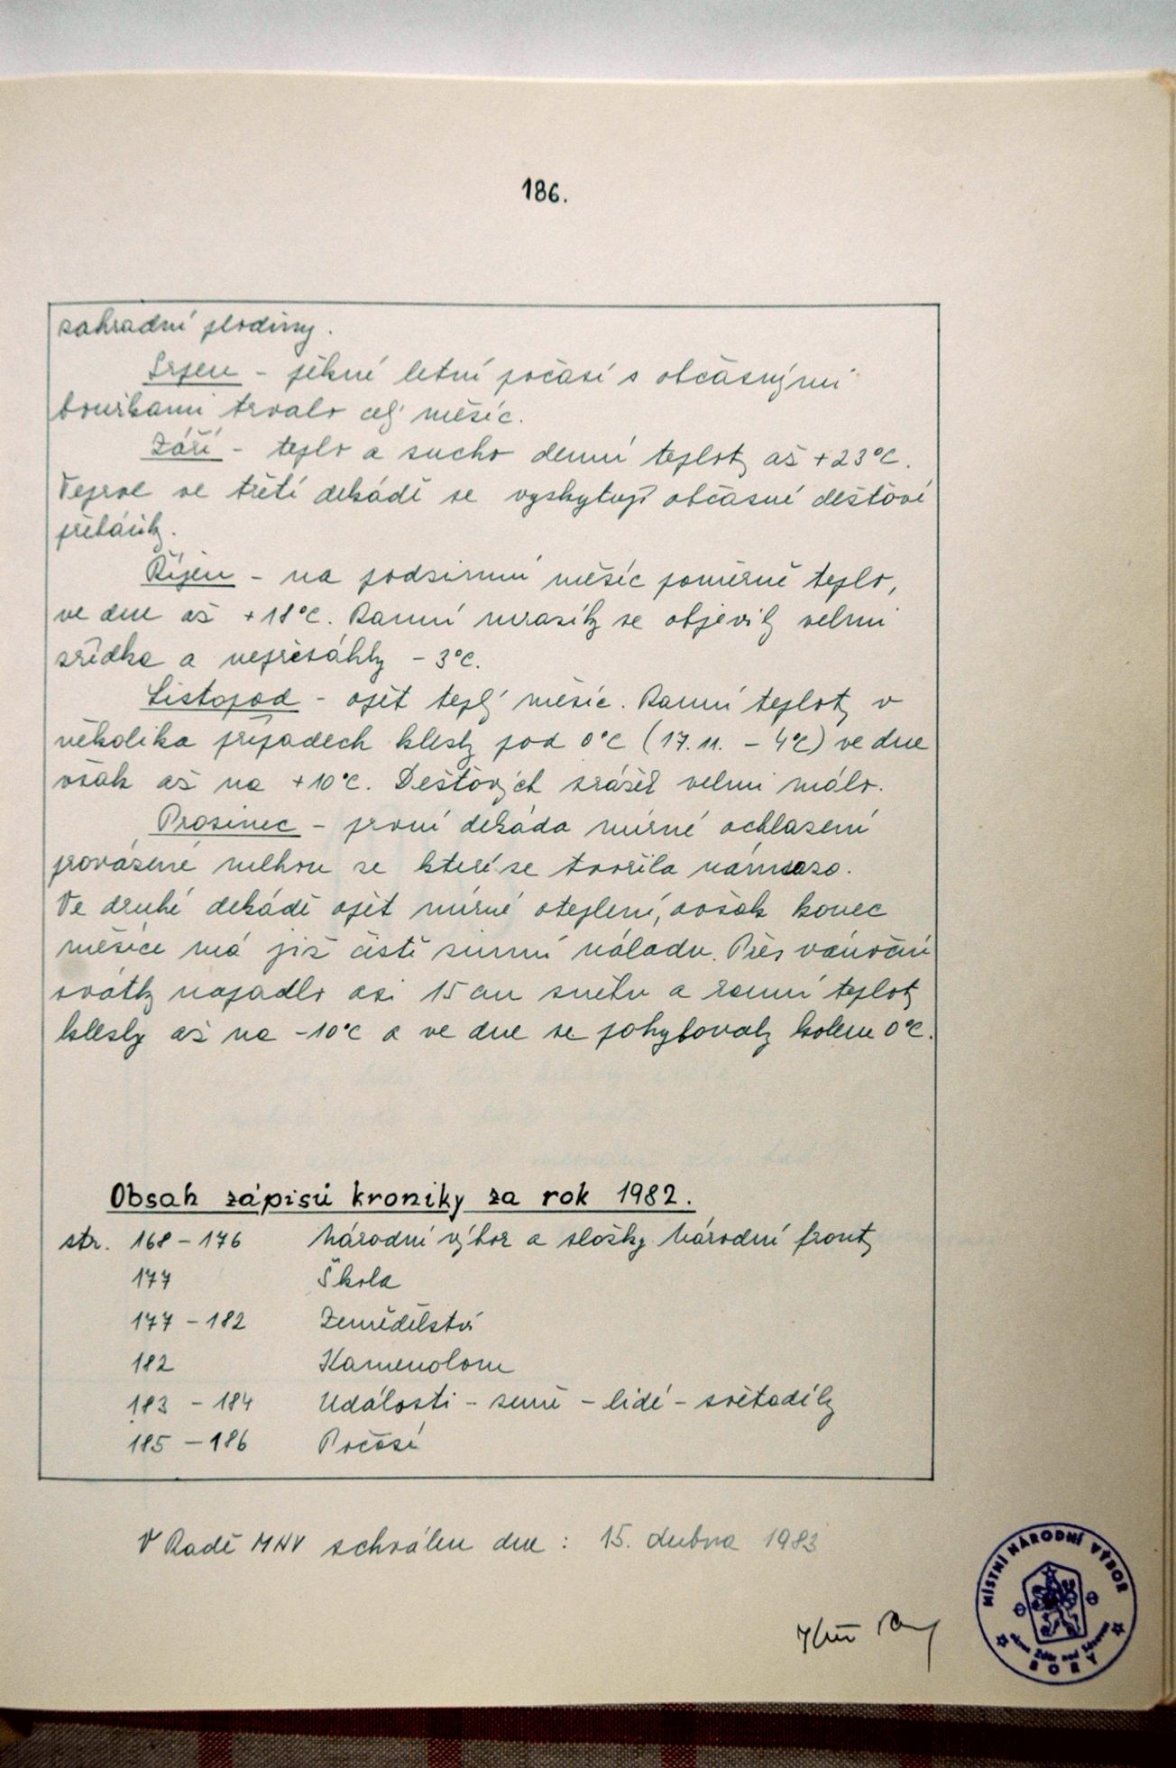 186.
zahradní plodiny.
Srpen - pěkné letní počasí s občasnými
bouřkami trvalo celý měsíc.
Září - teplo a sucho denní teploty až +23°C.
Teprve ve třetí dekádě se vyskytují občasné dešťové
přeháňky.
Říjen - na podzimní měsíc poměrně teplo,
ve dne až +18°C. Ranní mrazíky se objevily velmi
zřídka a nepřesáhly - 3°C.
Listopad - opět teplý měsíc. Ranní teploty v
několika případech klesly pod 0°C (17.11. - 4°C) ve dne
však až na +10°C. Dešťových srážek velmi málo.
Prosinec - první dekáda mírné ochlazení
provázené mlhou ze které se tvořila námraza.
Ve druhé dekádě opět mírné oteplení, avšak konec
měsíce má již čistě zimní náladu. Přes vánoční
svátky napadlo asi 15 cm sněhu a ranní teploty
klesly až na -10°C a ve dne se pohybovaly kolem 0°C.
Obsah zápisů kroniky za rok 1982.
str. 168 - 176 Národní výbor a složky Národní fronty
177 Škola
177 - 182 Zemědělství
182 Kamenolom
183 - 184 Události - země - lidé - světadíly
185 - 186 Počasí
V Radě MNV schválen dne : 15. dubna 1983
MÍSTNÍ NÁRODNÍ VÝBOR
okres Žďár nad Sázavou
BORY